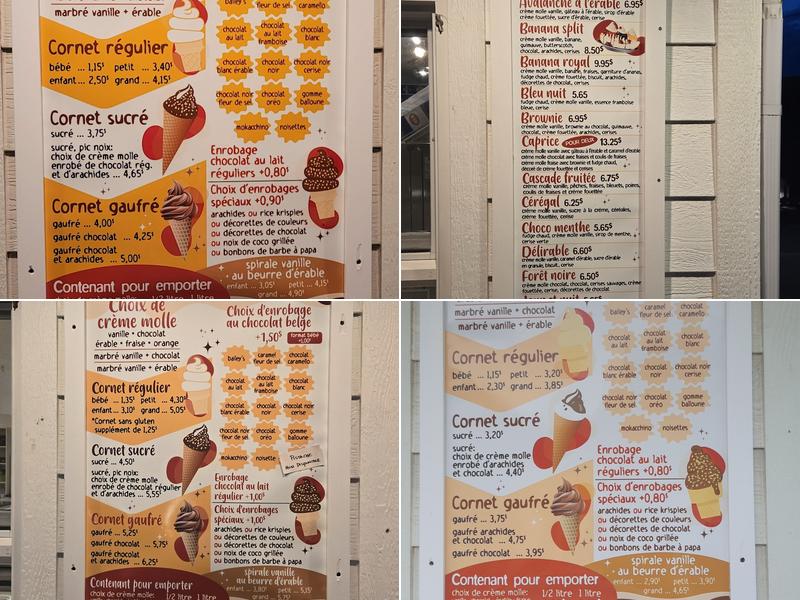 marbré vanille + érable
Cornet régulier
bébé ... 1,15$ petit ... 3,40$
enfant... 2,50$ grand ... 4,15$
Cornet sucré
sucré ... 3,75$
sucré, pic noix:
choix de crème molle
enrobé de chocolat rég.
et d'arachides ... 4,65$
Cornet gaufré
gaufré ... 4,00$
gaufré chocolat ... 4,25$
gaufré chocolat
et arachides ... 5,00$
Contenant pour emporter
bailey's
caramel
fleur de sel
chocolat
caramelo
chocolat
au lait
chocolat
au lait
framboise
chocolat
blanc
chocolat
blanc érable
chocolat
noir
chocolat noir
cerise
chocolat noir
fleur de sel
chocolat
oréo
gomme
balloune
mokacchino
noisettes
Enrobage
chocolat au lait
réguliers +0,80$
Choix d'enrobages
spéciaux +0,90$
arachides ou rice krispies
ou décorettes de couleurs
ou décorettes de chocolat
ou noix de coco grillée
ou bonbons de barbe à papa
spirale vanille
au beurre d'érable
enfant ... 3,05$ petit ... 4,15$
grand ... 4,90$
Avalanche à l'érable 6.95$
crème molle vanille, gâteau à l'érable, sirop d'érable
crème fouettée, sucre d'érable, cerise
Banana split
crème molle vanille, banane,
guimauve, butterscotch,
chocolat, arachides, cerises 8.50$
Banana royal 9.95$
crème molle vanille, banane, fraises, garniture d'ananas,
fudge chaud, crème fouettée, biscuit, arachides,
décorettes de chocolat, cerises
Bleu nuit 5.65
fudge chaud, crème molle vanille, essence framboise
bleue, cerise
Brownie 6.95$
crème molle vanille, brownie au chocolat, guimauve,
chocolat, crème fouettée, arachides, cerises
Caprice POUR DEUX 13.25$
crème molle vanille avec gâteau à l'érable et caramel d'érable
crème molle chocolat avec fraises et coulis de fraises
crème molle fraise avec brownie et fudge chaud,
décoré de crème fouettée et cerises
Cascade fruitée 6.75$
crème molle vanille, pêches, fraises, bleuets, poires,
coulis de fraises et ananas
Cérégal 6.25$
crème molle vanille, sucre à la crème, céréales,
crème fouettée, cerise
Choco menthe 5.65$
fudge chaud, crème molle vanille, sirop de menthe,
cerise verte
Délirable 6.60$
crème molle vanille, caramel d'érable, sucre d'érable
en granule, biscuit, cerise
Forêt noire 6.50$
crème molle chocolat, chocolat, cerises sauvages, crème
fouettée, décorettes de chocolat, cerise
Choix de
crème molle
vanille + chocolat
érable + fraise + orange
marbré vanille + chocolat
marbré vanille + érable
Cornet régulier
bébé ... 1,35$ petit ... 4,30$
enfant ... 3,10$ grand ... 5,05$
*Cornet sans gluten
supplément de 1,25$
Cornet sucré
sucré ... 4,50$
sucré, pic noix:
choix de crème molle
enrobé de chocolat régulier
et d'arachides ... 5,55$
Cornet gaufré
gaufré ... 5,25$
gaufré chocolat ... 5,75$
gaufré chocolat
et arachides ... 6,25$
Contenant pour emporter
choix de crème molle: 1/2 litre 1 litre
Choix d'enrobage
au chocolat belge
+1,50$ format bébé
+1,00$
bailey's
caramel
fleur de sel
chocolat
caramelo
chocolat
au lait
chocolat
au lait
framboise
chocolat
blanc
chocolat
blanc érable
chocolat
noir
chocolat noir
cerise
chocolat noir
fleur de sel
chocolat
oréo
gomme
balloune
mokacchino
noisette
Pistache
Non disponible
Enrobage
chocolat au lait
régulier +1,00$
Choix d'enrobages
spéciaux +1,00$
arachides ou rice krispies
ou décorettes de couleurs
ou décorettes de chocolat
ou noix de coco grillée
ou bonbons de barbe à papa
spirale vanille
au beurre d'érable
enfant ... 3,80$ petit ... 5,15$
marbré vanille + chocolat
marbré vanille + érable
Cornet régulier
bébé ... 1,15$ petit ... 3,20$
enfant ... 2,30$ grand ... 3,85$
Cornet sucré
sucré ... 3,20$
sucré:
choix de crème molle
enrobé d'arachides
et chocolat ... 4,40$
Cornet gaufré
gaufré ... 3,75$
gaufré arachides
et chocolat ... 4,75$
gaufré chocolat ... 3,95$
Contenant pour emporter
choix de crème molle: 1/2 litre 1 litre
bailey's
caramel
fleur de sel
chocolat
caramelo
chocolat
au lait
chocolat
au lait
framboise
chocolat
blanc
chocolat
blanc érable
chocolat
noir
chocolat noir
cerise
chocolat noir
fleur de sel
chocolat
oréo
gomme
balloune
mokacchino
noisettes
Enrobage
chocolat au lait
réguliers +0,80$
Choix d'enrobages
spéciaux +0,80$
arachides ou rice krispies
ou décorettes de couleurs
ou décorettes de chocolat
ou noix de coco grillée
ou bonbons de barbe à papa
spirale vanille
au beurre d'érable
enfant ... 2,90$ petit ... 3,90$
grand ... 4,65$